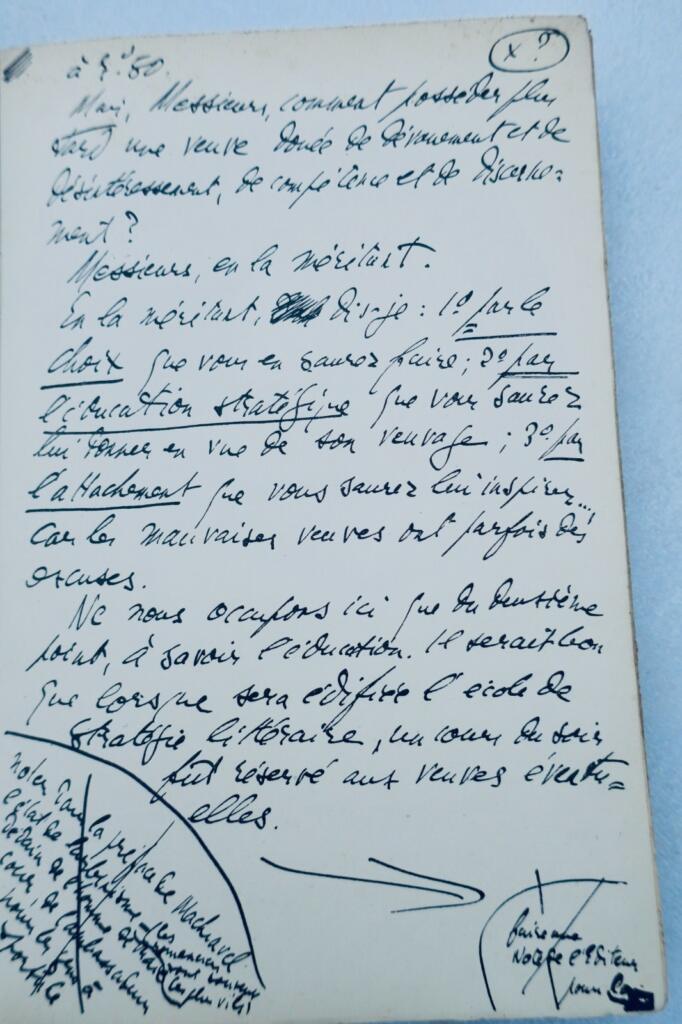 x ?
à 50.
Mais, Messieurs, comment posséder plus
tard une veuve douée de dévouement et de
désintéressement, de compétence et de discerne=
ment ?
Messieurs, en la méritant.
En la méritant, dis-je : 1º par le
choix que vous en saurez faire ; 2º par
l'éducation stratégique que vous saurez
lui donner en vue de son veuvage ; 3º par
l'attachement que vous saurez lui inspirer...
car les mauvaises veuves ont parfois des
excuses.
Ne nous occupons ici que du deuxième
point, à savoir l'éducation. Il serait bon
que lorsque sera édifiée l'école de
stratégie littéraire, un cours du soir
fût réservé aux veuves éventu=
elles.
noter dans la préface de Machiavel
l'état de
dédain de l'homme de
cour de l'ambassadeur
pour les
les plus vils
faire une
Note de l'Editeur
pour